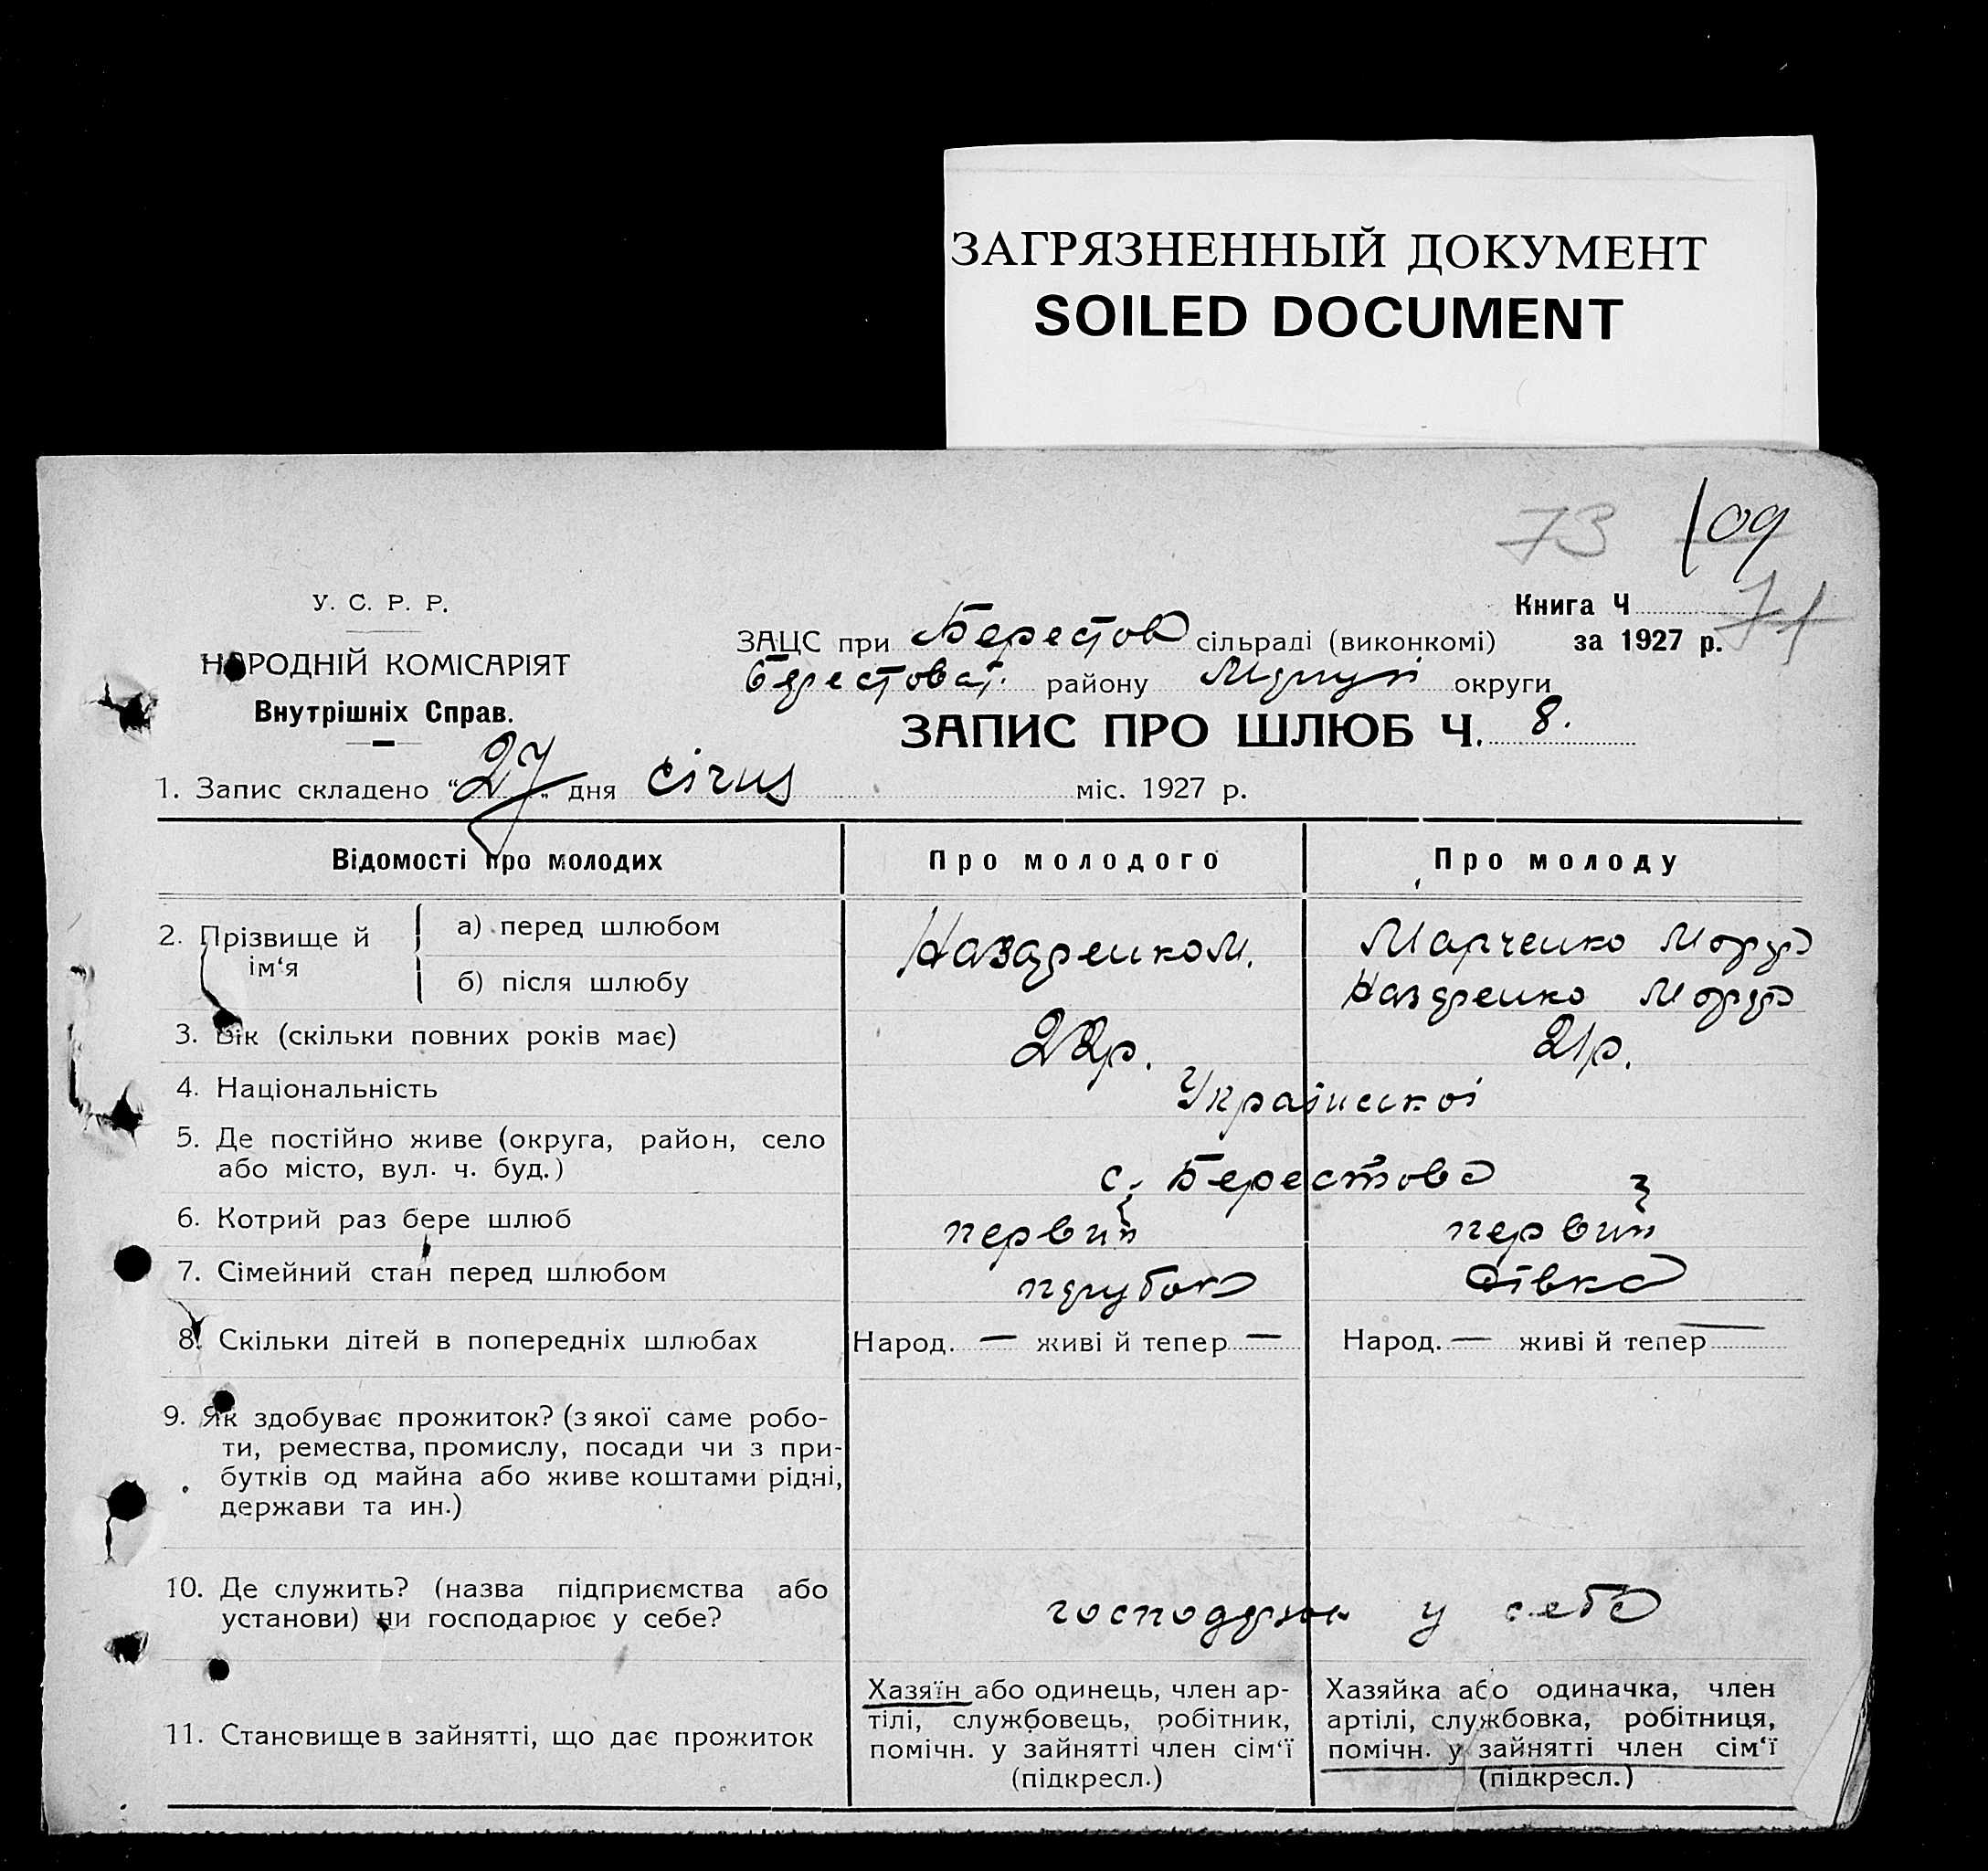 ЗАГРЯЗНЕННЫЙ ДОКУМЕНТ
SOILED DOCUMENT
73 109
У. С. Р. Р.
Книга Ч. 71
НАРОДНІЙ КОМІСАРІЯТ
ЗАЦС при Берестов сільраді (виконкомі) за 1927 р.
Внутрішніх Справ.
Берестоват. району округи
ЗАПИС ПРО ШЛЮБ Ч. 8.
1. Запис складено “27„ дня січня міс. 1927 р.
Відомості про молодих
Про молодого
Про молоду
2. Прізвище й ім‘я
а) перед шлюбом
Назаренко М.
Марченко
б) після шлюбу
Назаренко
3. Вік (скільки повних років має)
22р.
21р.
4. Національність
Української
5. Де постійно живе (округа, район, село
або місто, вул. ч. буд.)
с. Берестова
6. Котрий раз бере шлюб
первий
первий
7. Сімейний стан перед шлюбом
парубок
дівка
8. Скільки дітей в попередніх шлюбах
Народ. — живі й тепер —
Народ. — живі й тепер —
9. Як здобуває прожиток? (з якої саме робо-
ти, ремества, промислу, посади чи з при-
бутків од майна або живе коштами рідні,
держави та ин.)
10. Де служить? (назва підприємства або
установи) чи господарює у себе?
у себе
11. Становище в зайнятті, що дає прожиток
Хазяїн або одинець, член ар-
тілі, службовець, робітник,
помічн. у зайнятті член сім‘ї
(підкресл.)
Хазяйка або одиначка, член
артілі, службовка, робітниця,
помічн. у зайнятті член сім‘ї
(підкресл.)